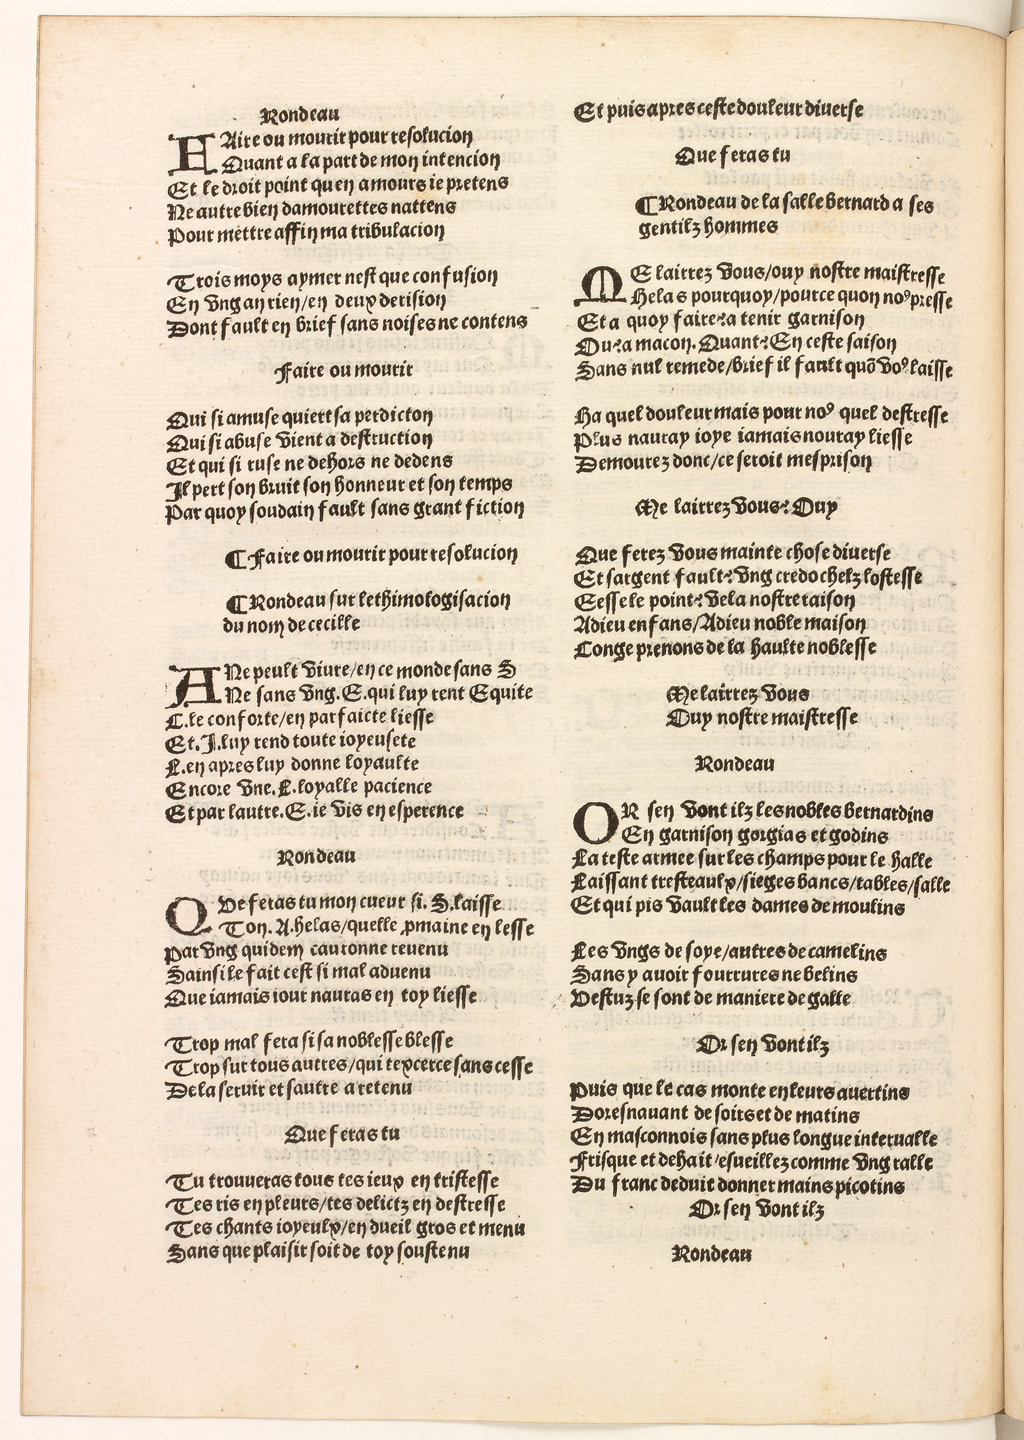 Rondeau
FAire ou mourir pour resolucion
Quant a la part de mon intencion
Et le droit point quen amours ie pretens
Ne autre bien damourettes nattens
Pour mettre affin ma tribulacion
Trois moys aymer nest que confusion
En vng an rien/en deux derision
Dont fault en brief sans noises ne contens
Faire ou mourir
Qui si amuse quiert sa perdicton
Qui si abuse vient a destruction
Et qui si ruse ne dehors ne dedens
Il pert son bruit son honneur et son temps
Par quoy soudain fault sans grant fiction
¶ Faire ou mourir pour resolucion
¶ Rondeau sur lethimologisacion
du nom de cecille
ANe peult viure/en ce monde sans S
Ne sans vng. E. qui luy rent Equite
C. le conforte/en parfaicte liesse
Et. I. luy rend toute ioyeusete
L. en apres luy donne loyaulte
Encore vne. L. loyalle pacience
Et par lautre. E. ie vis en esperence
Rondeau
QVe feras tu mon cueur si. S. laisse
Ton. A. helas/quelle ꝓmaine en lesse
Par vng quidem cautonne reuenu
Sainsi le fait cest si mal aduenu
Que iamais iour nauras en toy liesse
Trop mal fera si sa noblesse blesse
Trop sur tous autres/qui texcerce sans cesse
De la seruir et sautre a retenu
Que feras tu
Tu trouueras tous tes ieux en tristesse
Tes ris en pleurs/tes delictz en destresse
Tes chants ioyeulx/en dueil gros et menu
Sans que plaisir soit de toy soustenu
Et puis apres ceste douleur diuerse
Que feras tu
¶ Rondeau de la salle bernard a ses
gentilz hommes
ME lairrez vous/ouy nostre maistresse
Helas pourquoy/pource quon noꝰ presse
Et a quoy faire? a tenir garnison
Ou? a macon. Quant? En ceste saison
Sans nul remede/brief il fault quõ voꝰ laisse
Ha quel douleur mais pour noꝰ quel destresse
Plus nauray ioye iamais nouray liesse
Demourez donc/ce seroit mesprison
Me lairrez vous? Ouy
Que ferez vous mainte chose diuerse
Et sargent fault? vng credo chelz lostesse
Eesse le point? vela nostre raison
Adieu enfans/Adieu noble maison
Conge prenons de la haulte noblesse
Me lairrez vous
Ouy nostre maistresse
Rondeau
OR sen vont ilz les nobles bernardins
En garnison gorgias et godins
La teste armee sur les champs pour le halle
Laissant tresteaulx/sieges bancs/tables/salle
Et qui pis vault les dames de moulins
Les vngs de soye/autres de camelins
Sans y auoir fourrures ne belins
Vestuz se sont de maniere de galle
Or sen vont ilz
Puis que le cas monte en leurs auertins
Doresnauant de soirs et de matins
En masconnois sans plus longue interualle
Frisque et dehait/esueillez comme vng ralle
Du franc deduit donner mains picotins
Or sen vont ilz
Rondeau